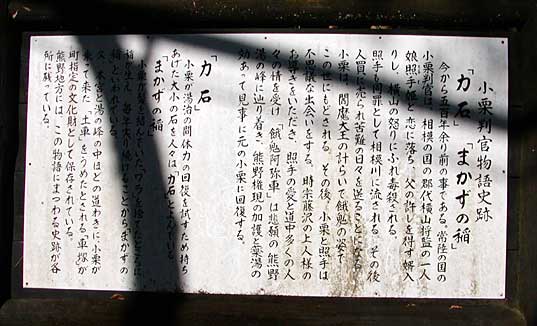 小栗判官物語史跡
「力石」「まかずの稲」
今から五百年余り前の事である。常陸の国の
小栗判官は、相模の国の郡代横山将監の一人
娘照手姫と恋に落ち、父の許しを得ず婿入
りし、横山の怒りにふれ毒殺される。
照手も同罪として相模川に流される。その後、
人買に売られ苦難の日々を送ることになる。
小栗は、閻魔大王の計らいで餓鬼の姿で
この世にもどされる。その後、小栗と照手は
不思議な出会いをする。時宗藤沢の上人様の
お導きをいただき、照手の愛と道中多くの人
々の情を受け「餓鬼阿弥車」は悲願の熊野
湯の峰に辿り着き、熊野権現の加護と薬湯の
効あって見事に元の小栗に回復する。
「力石」
小栗が湯治の間体力の回復を試すため持ち
あげた大小の石を人々は「力石」とよんでいる。
「まかずの稲」
小栗が髪を結んでいたワラを捨てたところに
稲が生え
稲」といわれている。
又、本宮、湯の峰の中ほどの道わきに、小栗が
乗って来た「土車」をうめたとされる「車塚」が
町指定の文化財として保存されている。
熊野地方には、この物語にまつわる史跡が各
所に残っている。